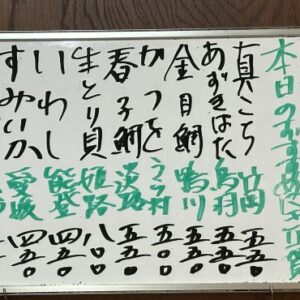 本日のおすすめにぎり一貫
真こち 竹岡 五五〇
あずきはた 鳥羽 五五〇
金目鯛 鴨川 五五〇
かつを 五五〇
春子鯛 淡路 五五〇
生とり貝 姫路 八〇〇
いわし 能登 四五〇
すみいか